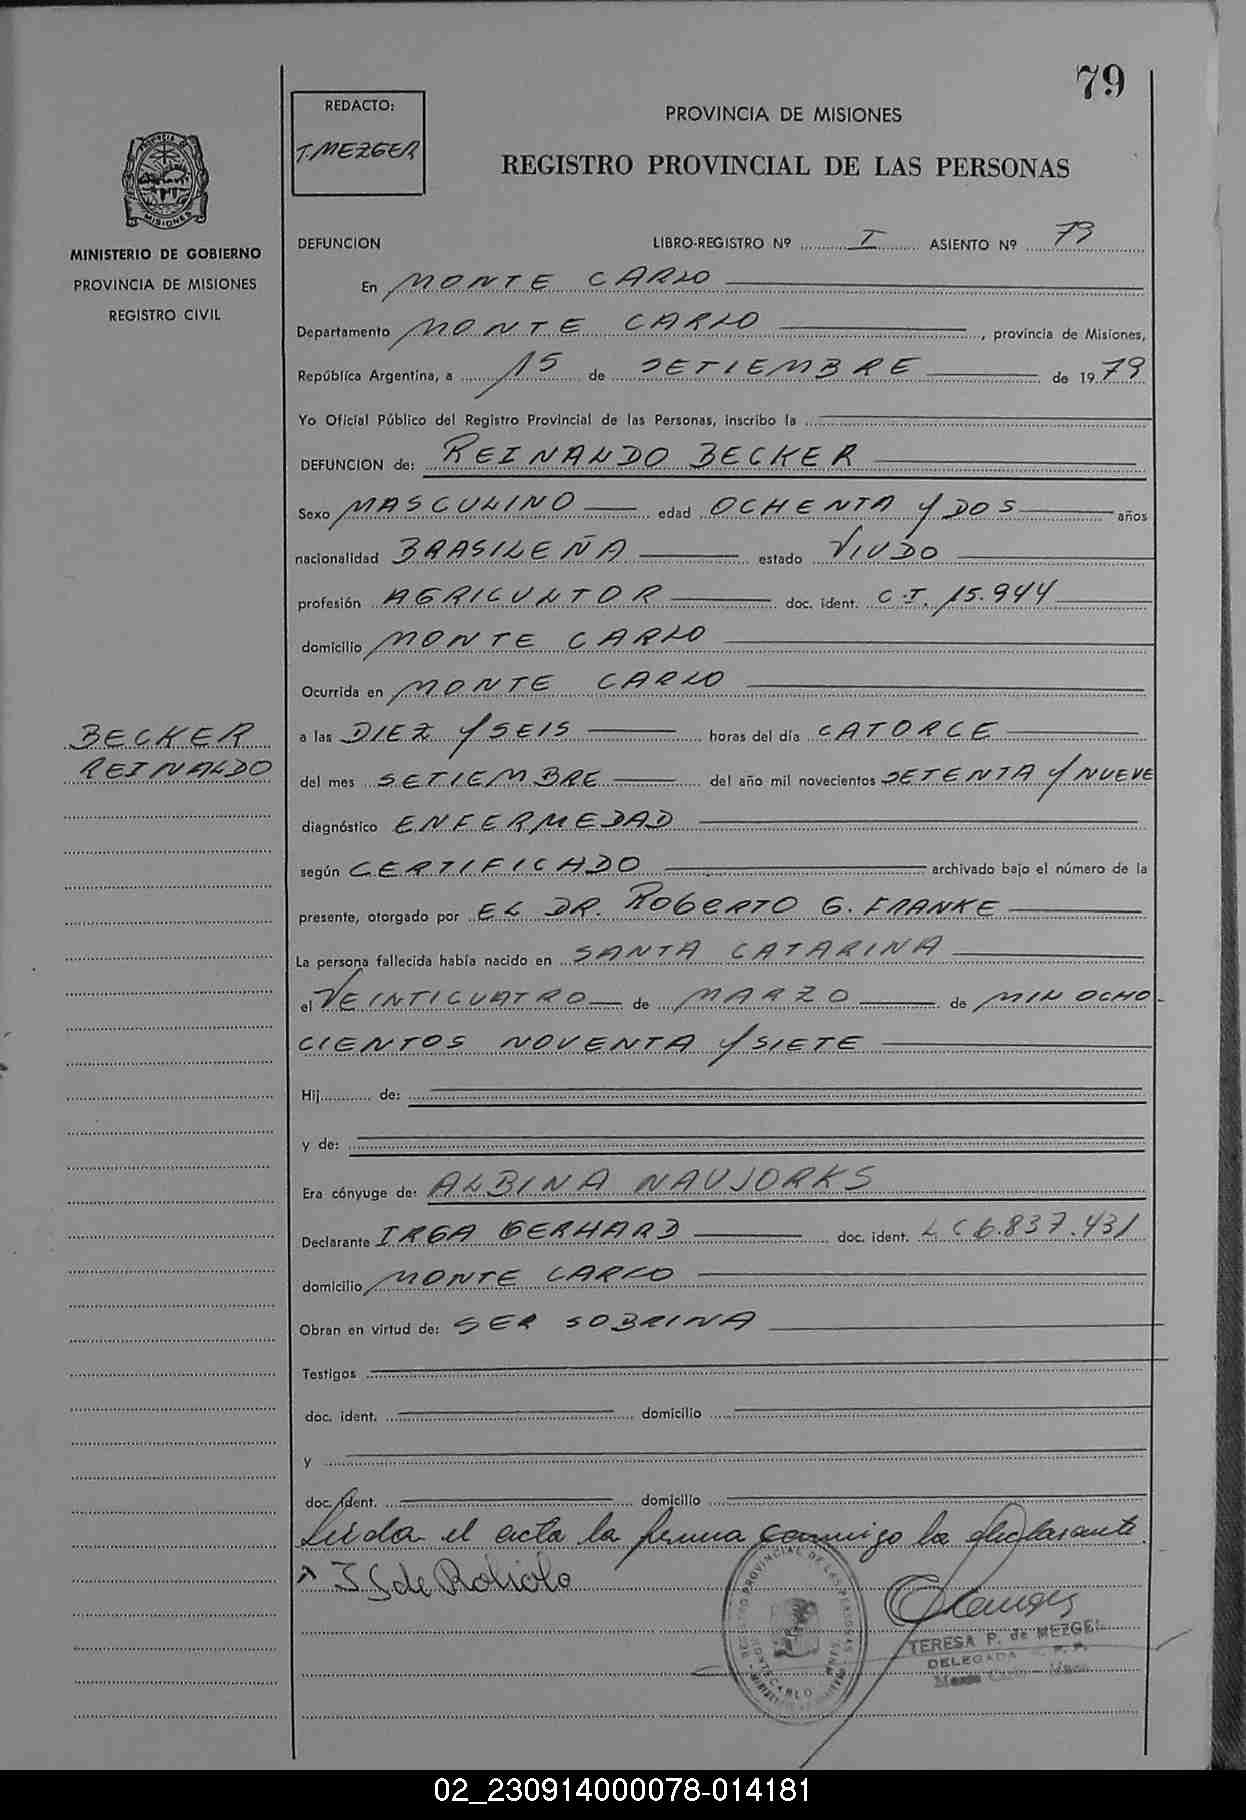 79
REDACTO:
T. MEZGER
PROVINCIA DE MISIONES
REGISTRO PROVINCIAL DE LAS PERSONAS
MINISTERIO DE GOBIERNO
PROVINCIA DE MISIONES
REGISTRO CIVIL
DEFUNCION LIBRO-REGISTRO Nº I ASIENTO Nº 79
En MONTE CARLO
Departamento MONTE CARLO, provincia de Misiones,
República Argentina, a 15 de SETIEMBRE de 1979
Yo Oficial Público del Registro Provincial de las Personas, inscribo la
DEFUNCION de: REINALDO BECKER
Sexo MASCULINO edad OCHENTA Y DOS años
nacionalidad BRASILEÑA estado VIUDO
profesión AGRICULTOR doc. ident. C.I. 15.944
domicilio MONTE CARLO
Ocurrida en MONTE CARLO
BECKER
REINALDO
a las DIEZ Y SEIS horas del día CATORCE
del mes SETIEMBRE del año mil novecientos SETENTA Y NUEVE
diagnóstico ENFERMEDAD
según CERTIFICADO archivado bajo el número de la
presente, otorgado por EL DR. ROBERTO G. FRANKE
La persona fallecida había nacido en SANTA CATARINA
el VEINTICUATRO de MARZO de MIL OCHO-
CIENTOS NOVENTA Y SIETE
Hij de:
y de:
Era cónyuge de: ALBINA NAUJORKS
Declarante IRGA GERHARD doc. ident. L C 6.837.431
domicilio MONTE CARLO
Obran en virtud de: SER SOBRINA
Testigos
doc. ident. domicilio
y
doc. ident. domicilio
Leída el acta la firma conmigo la declarante.
REGISTRO PROVINCIAL DE LAS PERSONAS
MONTECARLO
TERESA P. de MEZGER
DELEGADA R. P. P.
Monte Carlo - Mnes.
02_230914000078-014181